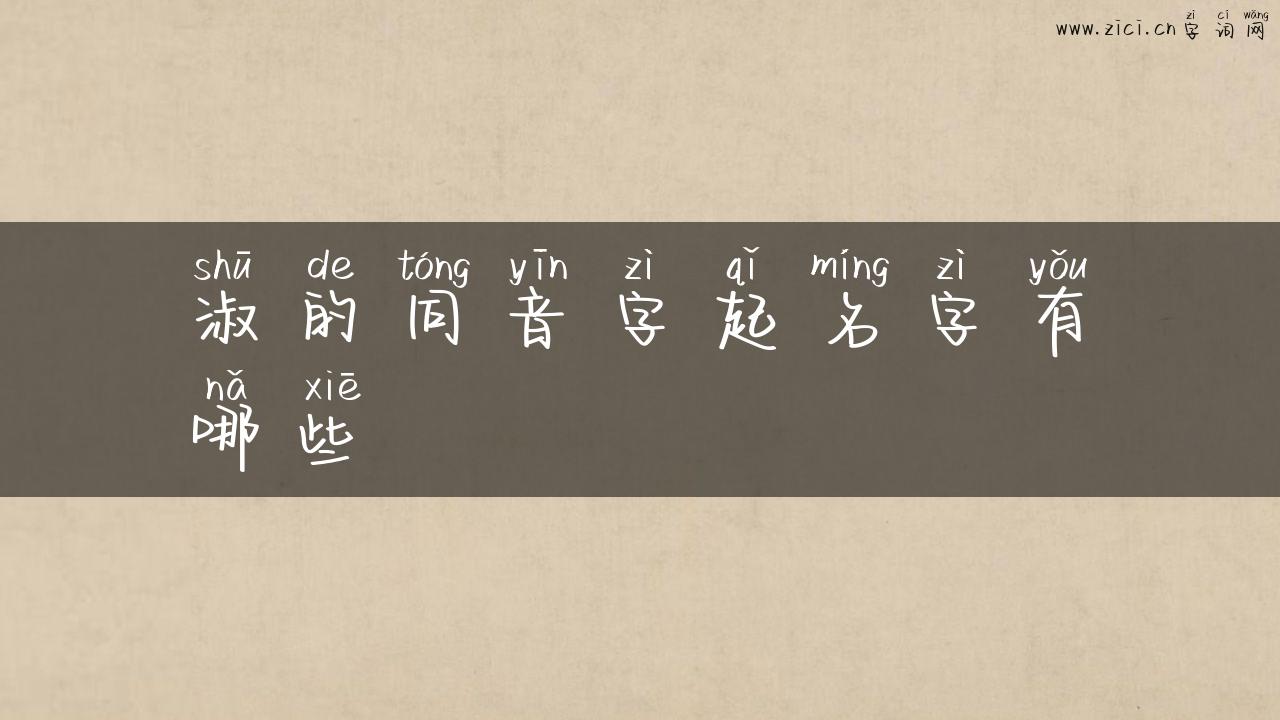 zì cí wǎng
www.zici.cn 字词网
shū de tóng yīn zì qǐ míng zì yǒu
淑的同音字起名字有
nǎ xiē
哪些